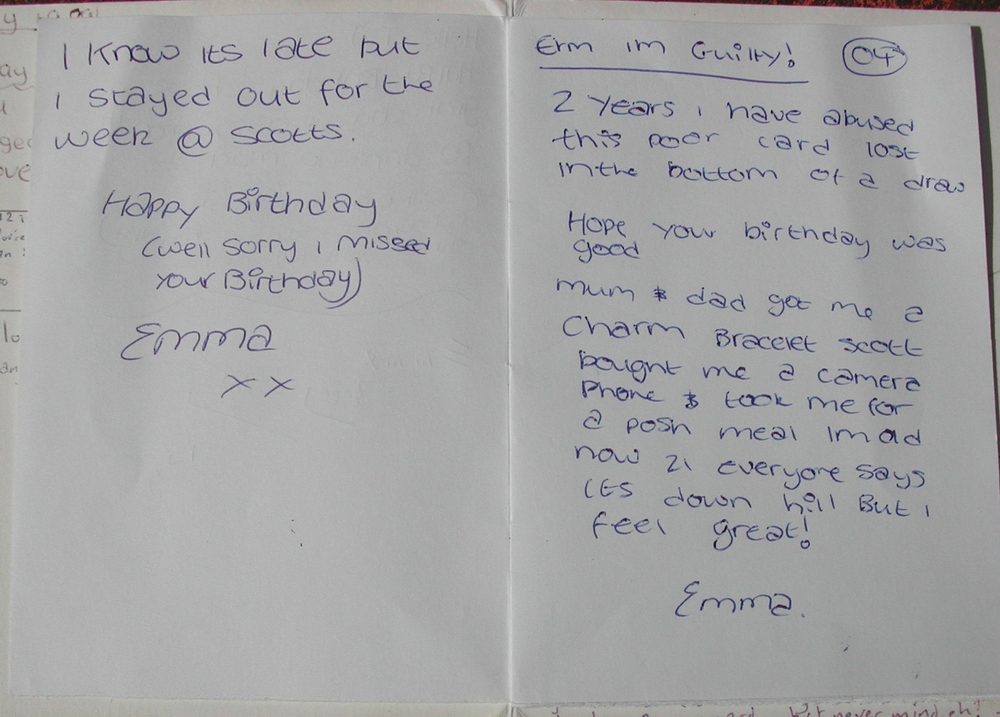 I Know its late but
I stayed out for the
week @ Scotts.
Happy Birthday
(well sorry i missed
your Birthday)
Emma
xx
Erm im Guilty! 04
2 Years i have abused
this poor card lost
in the bottom of a draw
Hope your birthday was
good
mum & dad got me a
Charm Bracelet Scott
bought me a camera
Phone & took me for
a posh meal Im old
now 21 everyone says
its down hill But i
feel great!
Emma.
never mind eh!